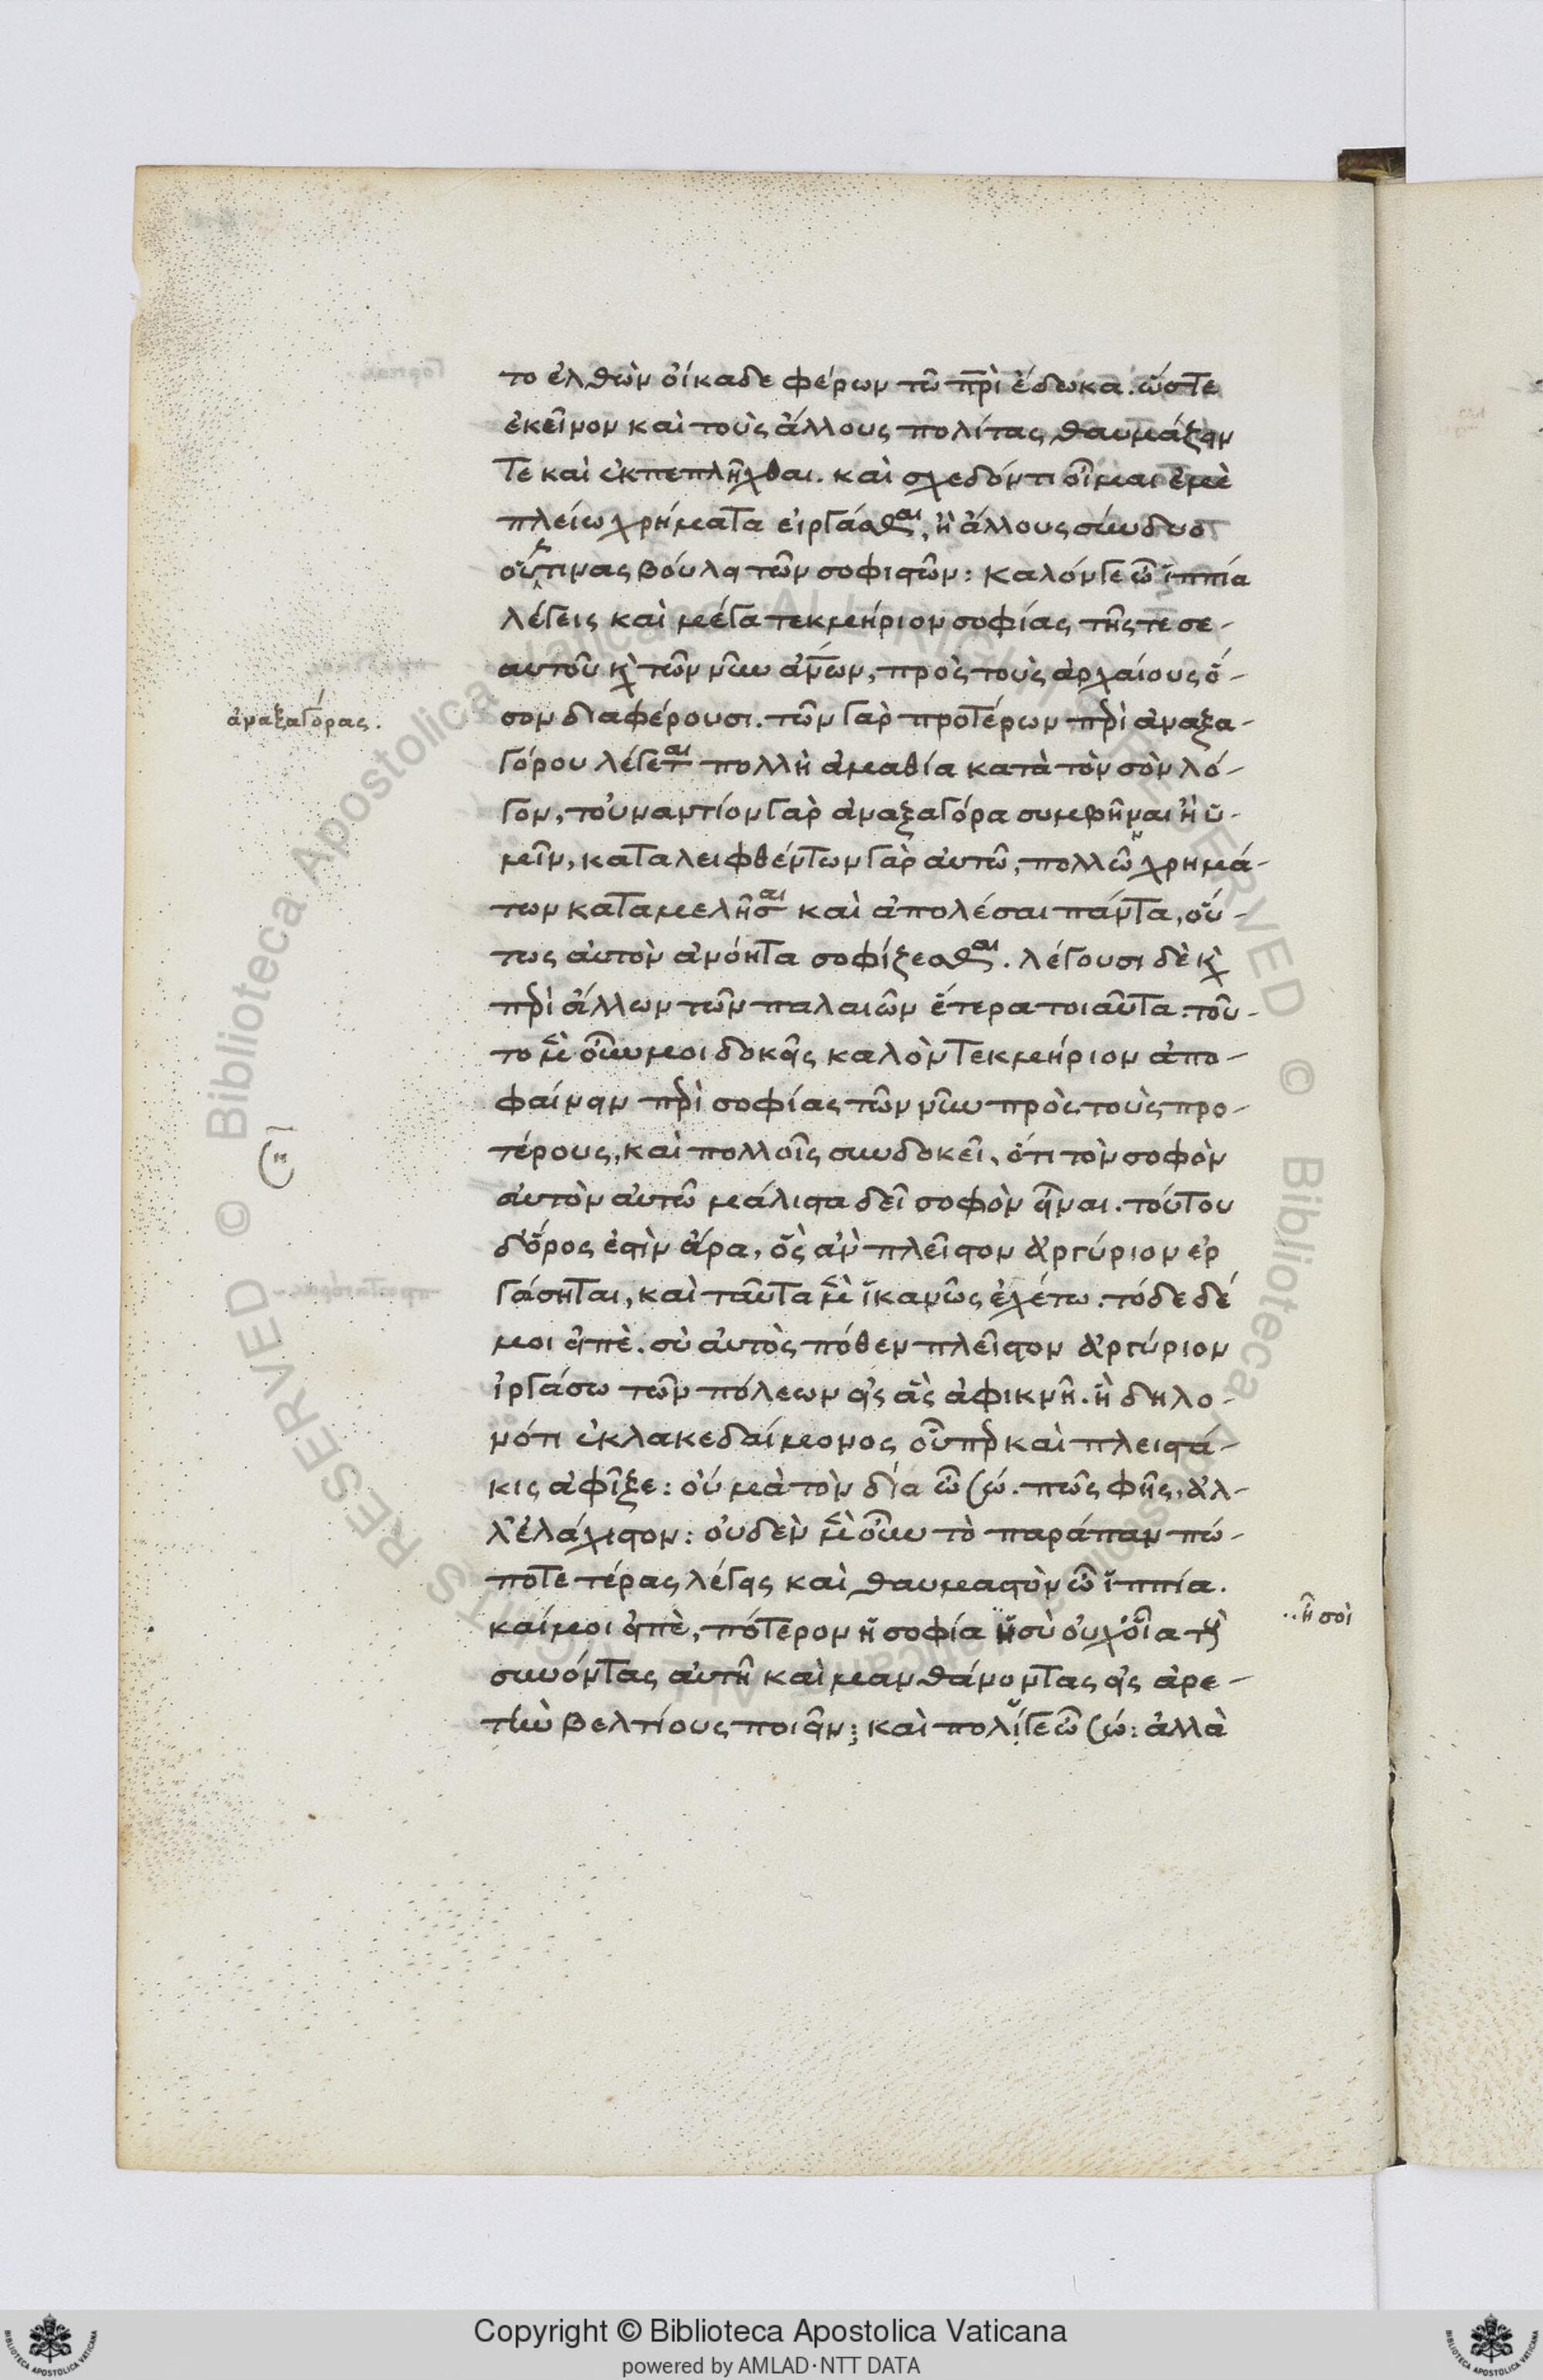 το ἐλθὼν οἴκαδε φέρων τῶ πρὶ ἔδωκα. ὥστε
ἐκεῖνον καὶ τοὺς ἄλλους πολίτας θαυμάζειν
τε καὶ ἐκπεπλῆχθαι. καὶ σχεδόν τι οἶμαι ἐμὲ
πλείω χρήματα εἰργάσθαι, ἢ ἄλλους σύνδυο
οὕστινας βούλει τῶν σοφιστῶν: καλόν γε ὦ ἱππία
λέγεις καὶ μέγα τεκμήριον σοφίας τῆς τε σε-
αυτοῦ κὶ τῶν νῦν ἀνων, πρὸς τοὺς ἀρχαίους ὅ-
σον διαφέρουσι. τῶν γὰρ προτέρων περὶ ἀναξα-
ἀναξαγόρας.
γόρου λέγεται πολλὴ ἀμαθία κατὰ τὸν σὸν λό-
γον, τοὐναντίον γὰρ ἀναξαγόρα συμβῆναι ἢ ὑ-
μῖν, καταλειφθέντων γὰρ αὐτῶ, πολλῶν χρημά-
των καταμελῆσαι καὶ ἀπολέσαι πάντα, οὕ-
τως αὐτὸν ἀνόητα σοφίζεσθαι. λέγουσι δὲ κὶ
περὶ ἄλλων τῶν παλαιῶν ἕτερα τοιαῦτα. τοῦ-
το μὲν οὖν μοι δοκεῖς καλὸν τεκμήριον ἀπο-
φαίνειν περὶ σοφίας τῶν νῦν πρὸς τοὺς προ-
τέρους, καὶ πολλοῖς συνδοκεῖ, ὅτι τὸν σοφὸν
αὐτὸν αὑτῶ μάλιστα δεῖ σοφὸν εἶναι. τούτου
δ' ὅρος ἐστὶν ἄρα, ὃς ἂν πλεῖστον ἀργύριον ἐρ
γάσηται, καὶ ταῦτα μὲν ἱκανῶς ἐχέτω. τόδε δέ
μοι εἰπὲ. σὺ αὐτὸς πόθεν πλεῖστον ἀργύριον
ἰργάσω τῶν πόλεων εἰς ἃς ἀφικνῆ. ἢ δηλο-
νότι ἐκ λακεδαίμονος οὗπερ καὶ πλειστά-
κις ἀφῖξε: οὐ μὰ τὸν δία ὦ σώ. πῶς φῆς, ἀλ-
λ' ἐλάχιστον: οὐδὲν μὲν οὖν τὸ παράπαν πώ-
ποτε τέρας λέγεις καὶ θαυμαστὸν ὦ ἱππία.
καί μοι εἰπὲ, πότερον ἡ σοφία ἡ σὺ οὐχ' οἵα τὴν
ἢ σοὶ
συνόντας αὐτῆ καὶ μανθάνοντας εἰς ἀρε-
τὴν βελτίους ποιεῖν; καὶ πολύ γε ὦ σώ: ἀλλὰ